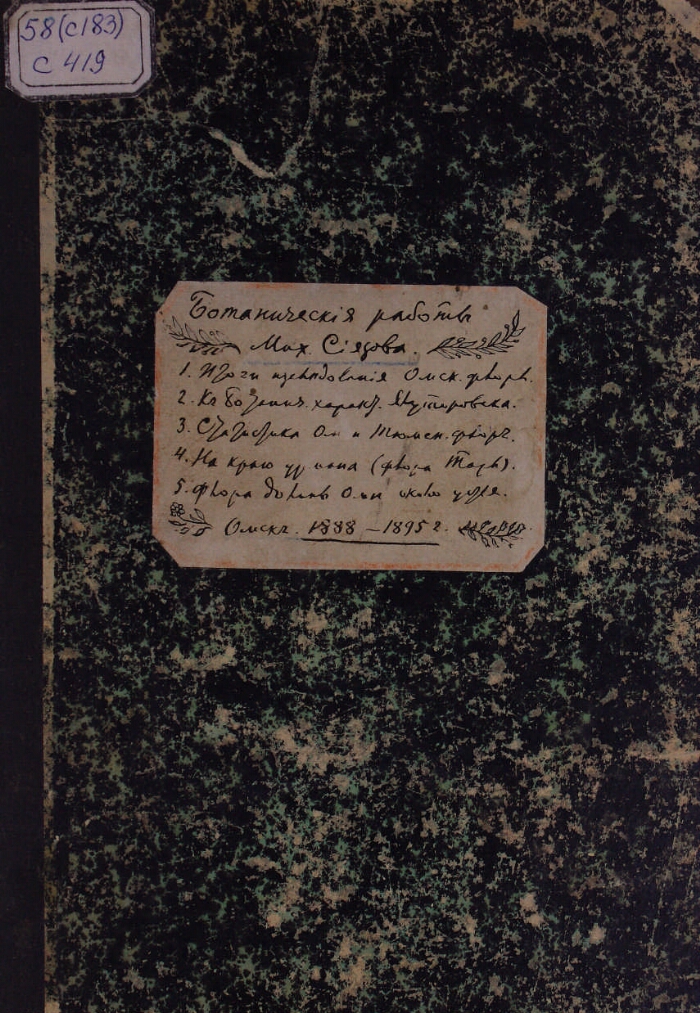 58(с183)
С 419
Ботаническія работы
Мих. Сіязова.
1. Итоги изслѣдованія Омск. флоры.
2. Къ ботанич. характ. Ялуторовска.
3. Статистика Ом. и Тюмен. флоръ.
4. На краю урмана (флора Тары).
5. Флора долины Оми около
Омскъ. 1888–1895 г.